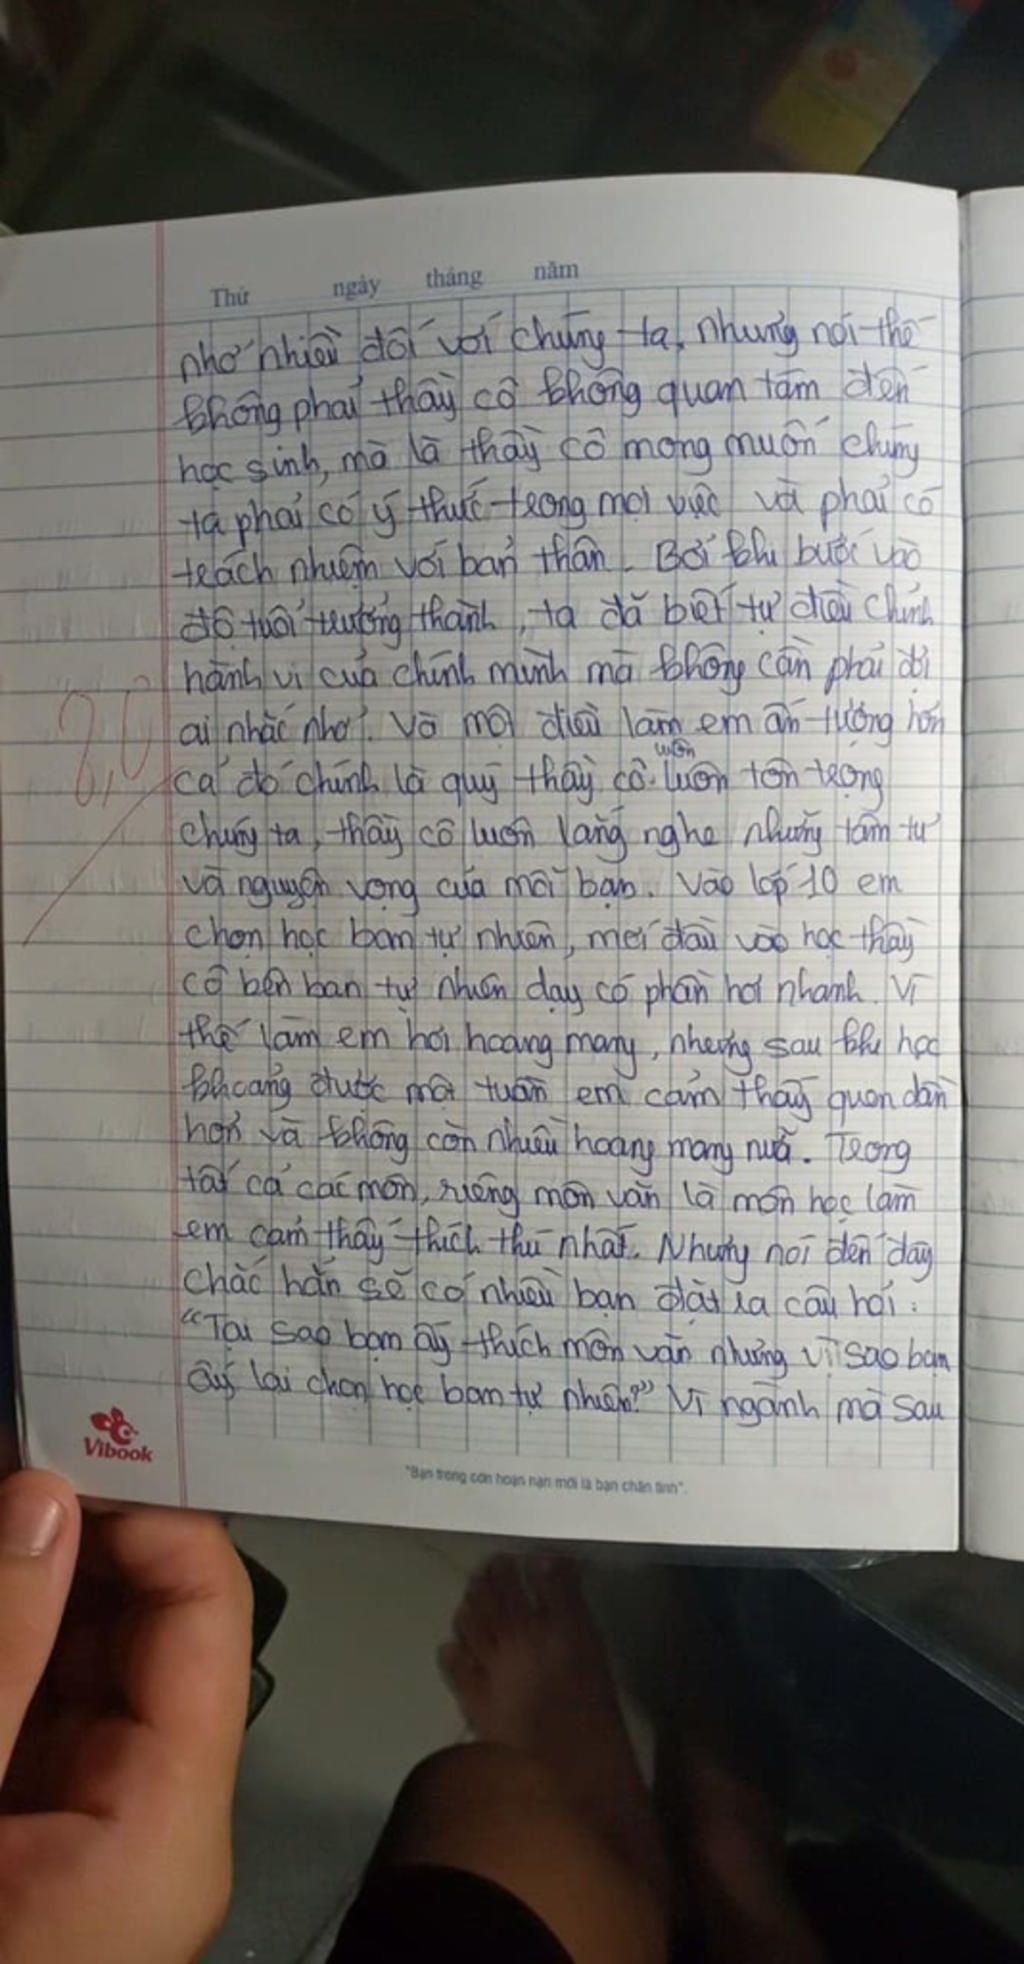 Thứ ngày tháng năm
nhở nhiều đối với chúng ta, nhưng nói thế
không phải thầy cô không quan tâm đến
học sinh, mà là thầy cô mong muốn chúng
ta phải có ý thức trong mọi việc và phải có
trách nhiệm với bản thân. Bởi khi bước vào
độ tuổi trưởng thành, ta đã biết tự điều chỉnh
hành vi của chính mình mà không cần phải đợi
ai nhắc nhở. Và một điều làm em ấn tượng hơn
cả đó chính là quý thầy cô luôn luôn tôn trọng
chúng ta, thầy cô luôn lắng nghe những tâm tư
và nguyện vọng của mỗi bạn. Vào lớp 10 em
chọn học ban tự nhiên, mới đầu vào học thầy
cô bên ban tự nhiên dạy có phần hơi nhanh. Vì
thế làm em hơi hoang mang, nhưng sau khi học
khoảng được một tuần em cảm thấy quen dần
hơn và không còn nhiều hoang mang nữa. Trong
tất cả các môn, riêng môn văn là môn học làm
em cảm thấy thích thú nhất. Nhưng nói đến đây
chắc hẳn sẽ có nhiều bạn đặt ra câu hỏi:
"Tại sao bạn ấy thích môn văn nhưng vì sao bạn
ấy lại chọn học ban tự nhiên?" Vì ngành mà sau
8,0
Vibook
"Bạn trong cơn hoạn nạn mới là bạn chân tình".